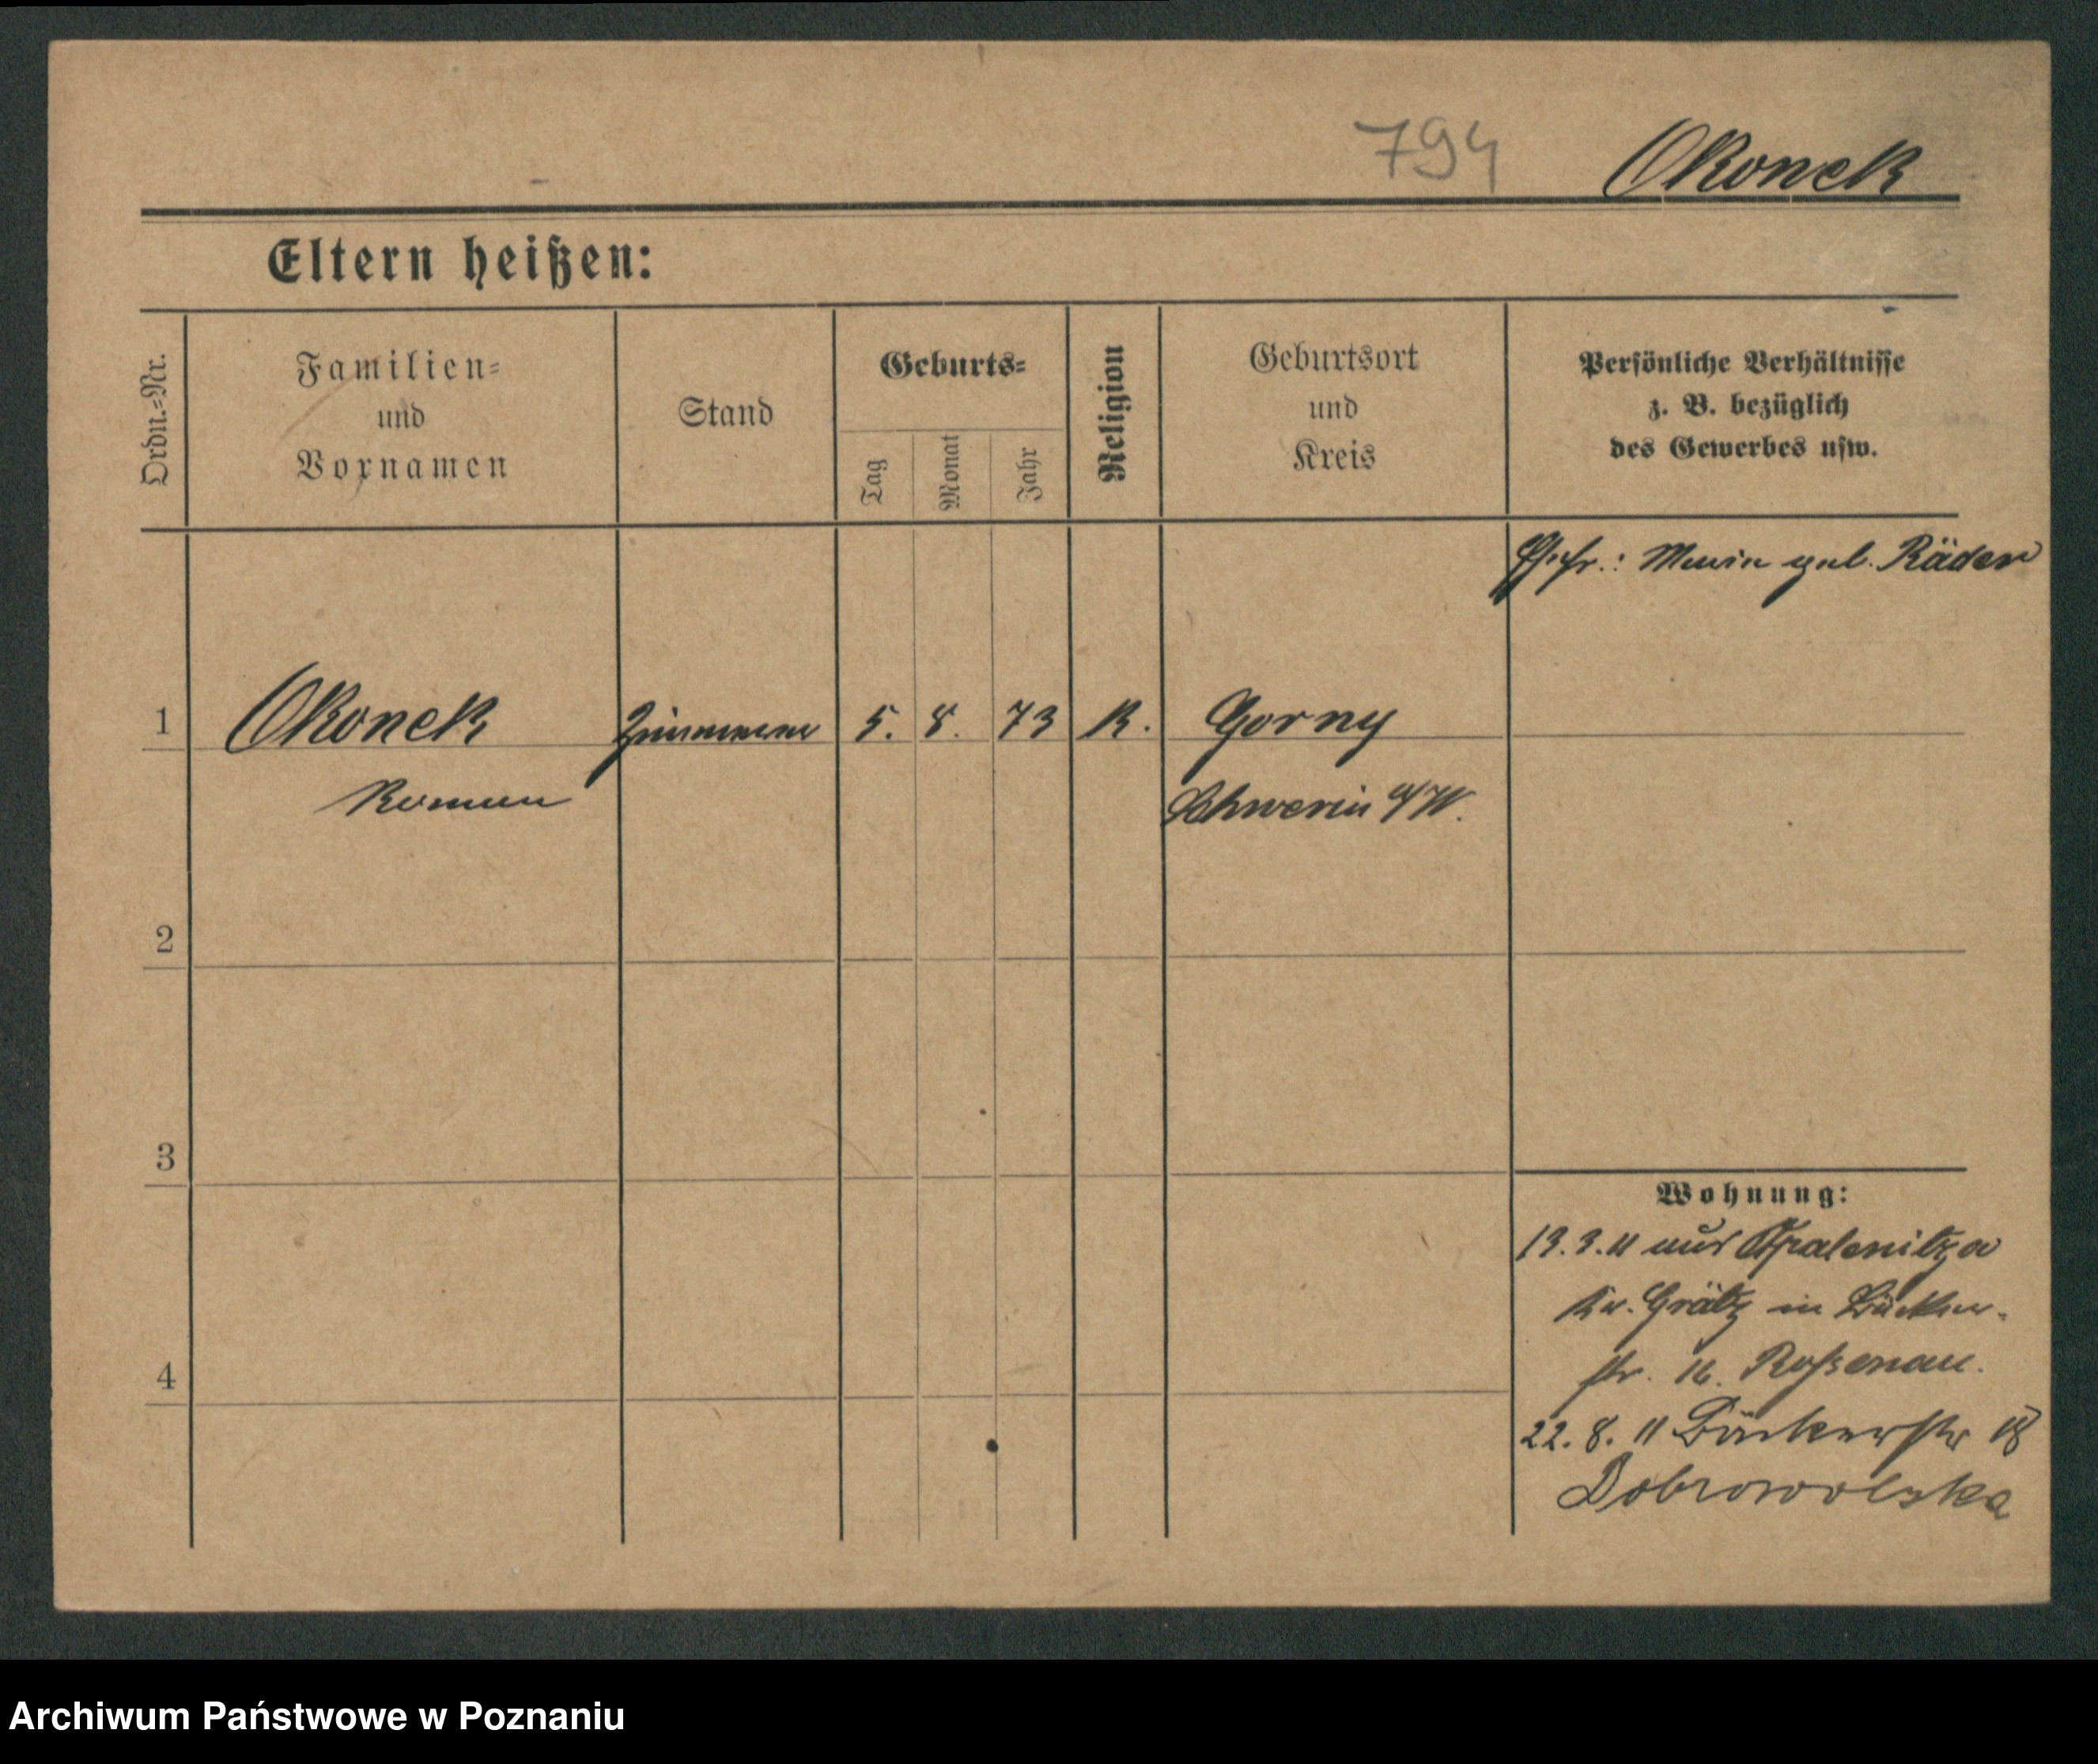 794 Okonek
Eltern heißen:
Ordn.-Nr.
Familien-
und
Vornamen
Stand
Geburts-
Tag
Monat
Jahr
Religion
Geburtsort
und
Kreis
Persönliche Verhältnisse
z. B. bezüglich
des Gewerbes usw.
Ehefr.: Maria geb. Räder
1 Okonek Zimmerer 5. 8. 73 K. Gorny
Roman Schwerin a/W.
2
3
4
Wohnung:
13.3.11 aus Opalenitza
Kr. Grätz in Bäcker-
str. 16. Roßenau.
22. 8. 11 Bäckerstr 18
Dobrowolska
Archiwum Państwowe w Poznaniu